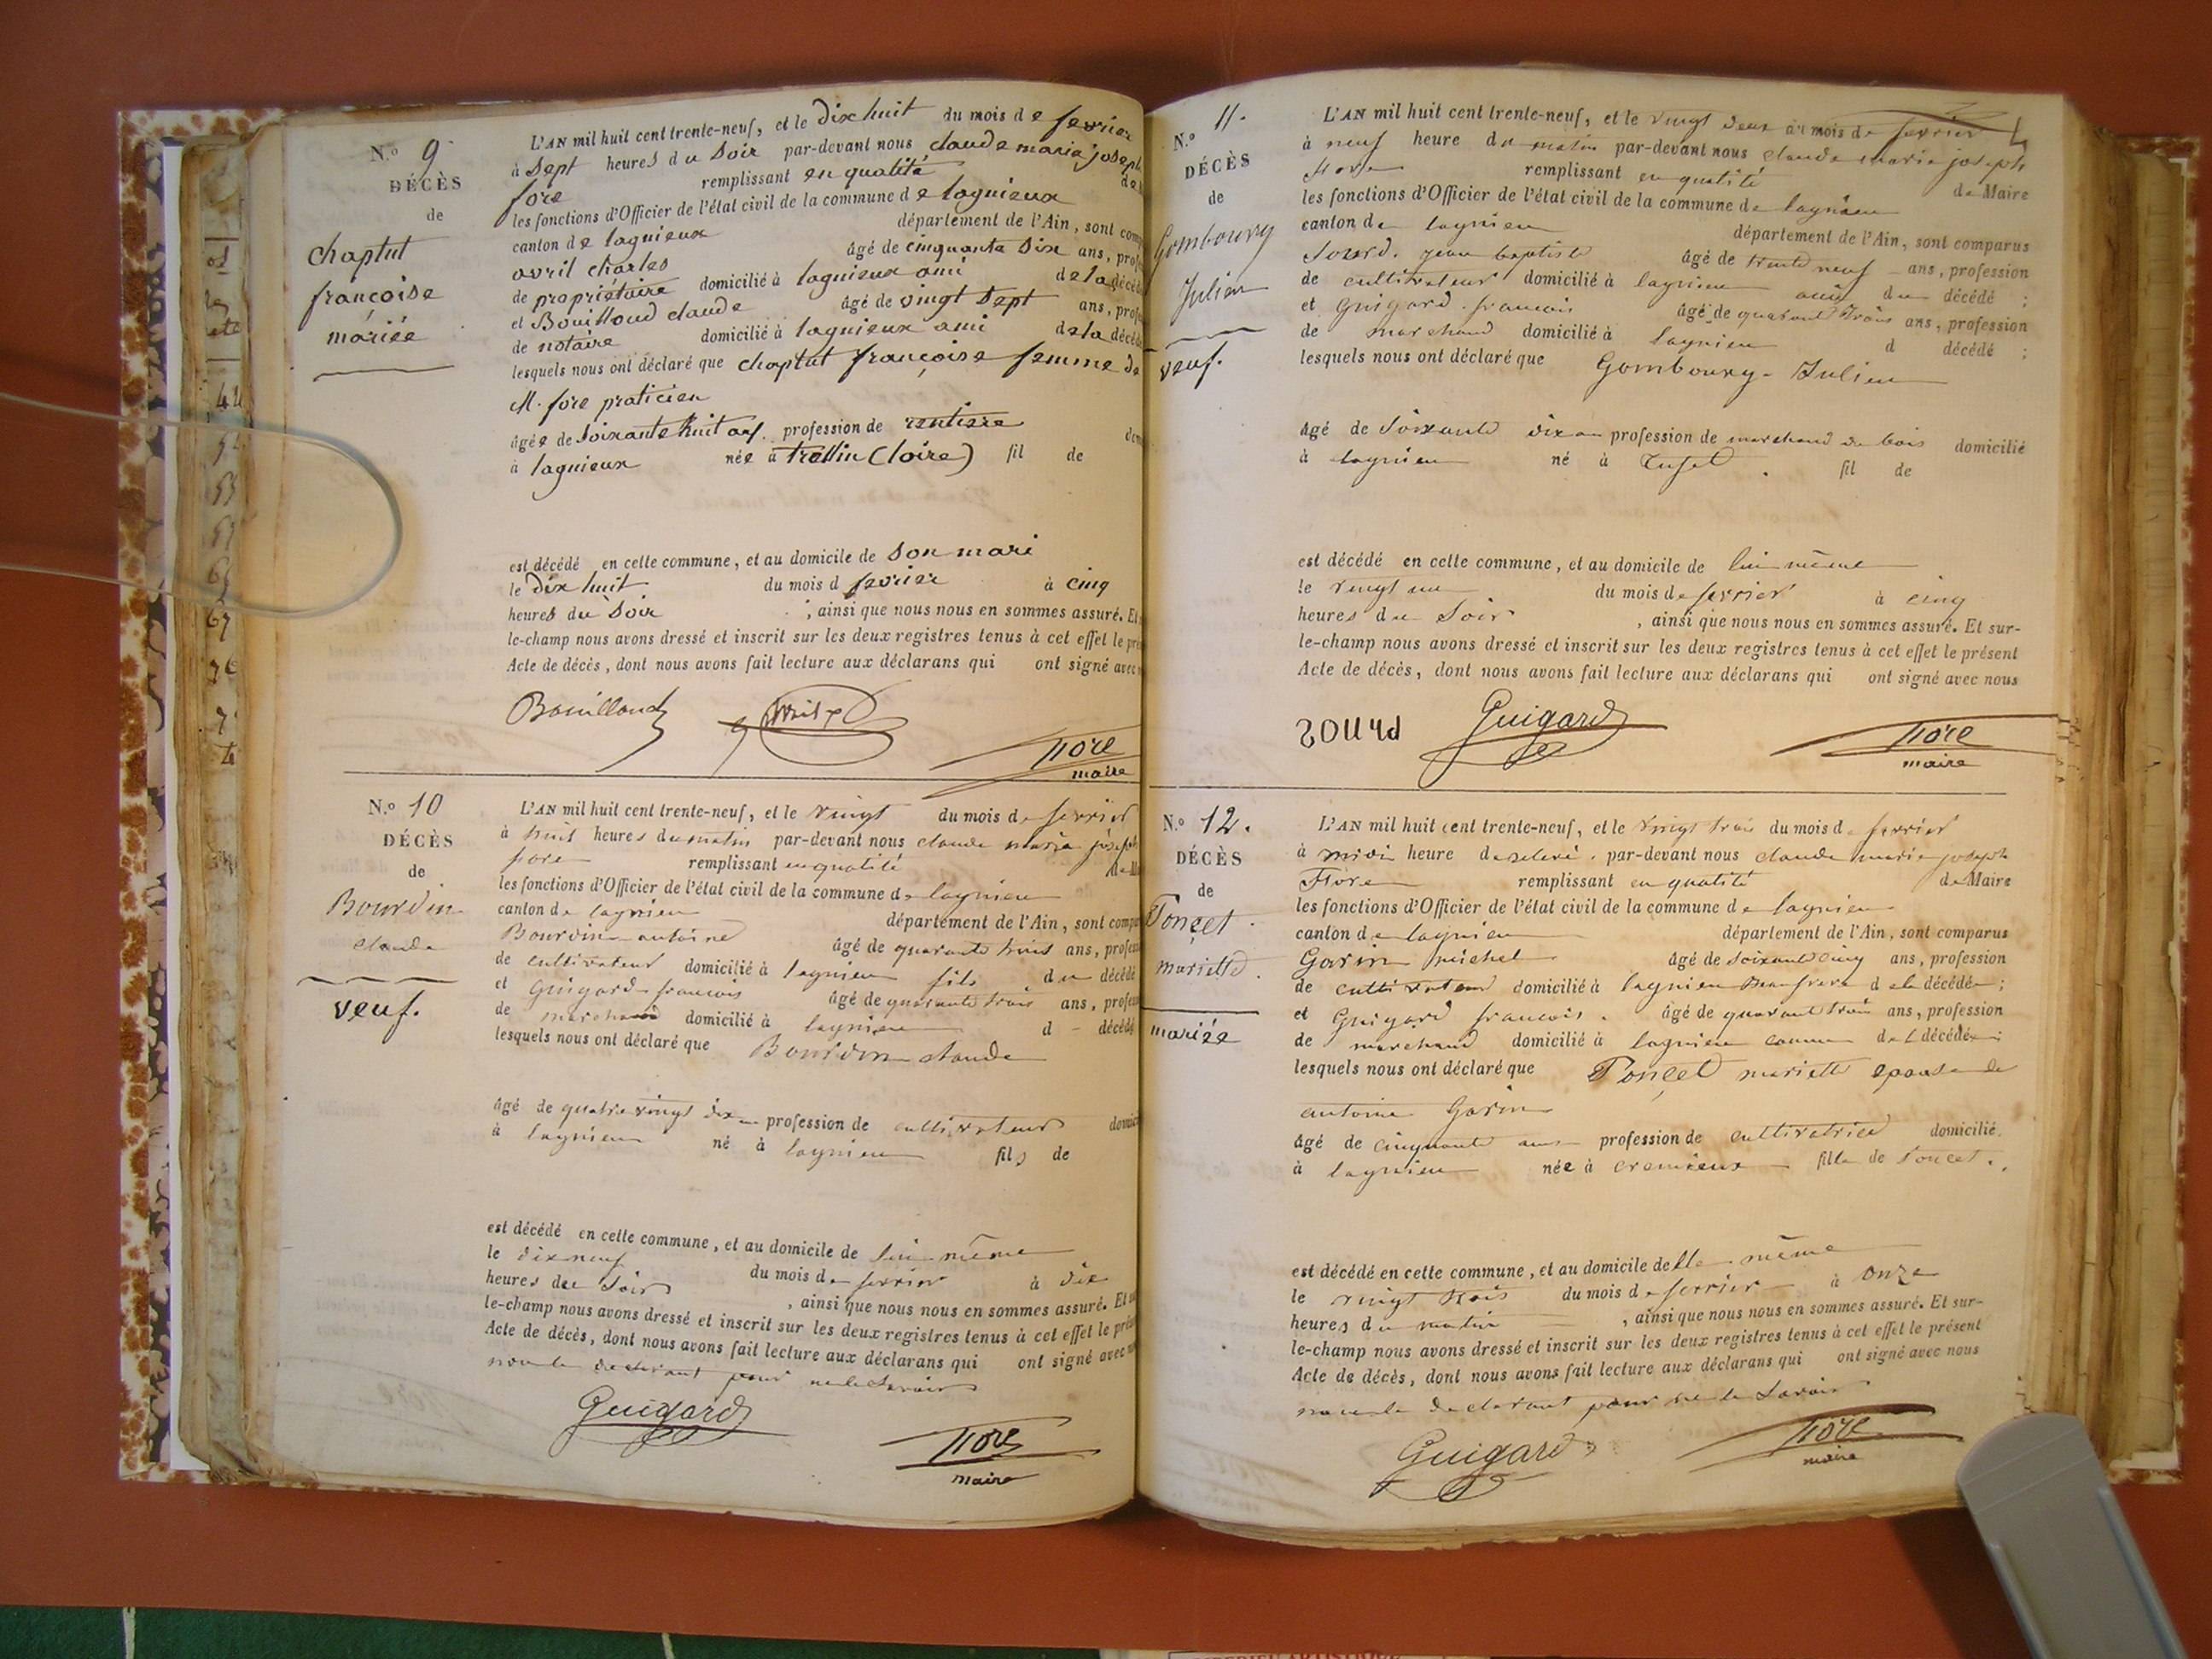 N.º 9
DÉCÈS
de
chaptut
françoise
mariée
L'AN mil huit cent trente-neuf, et le dix huit du mois de fevrier
à sept heures du soir par-devant nous claude maria joseph
fore remplissant en qualité de
les fonctions d'Officier de l'état civil de la commune de lagnieux
canton de lagnieux département de l'Ain, sont
avril charles âgé de cinquante dix ans,
de propriétaire domicilié à lagnieux ami de la
et Bouilloud claude âgé de vingt sept ans,
de notaire domicilié à lagnieux ami de la
lesquels nous ont déclaré que chaptut françoise femme de
M. fore praticien
âgée de soixante huit ans profession de rentiere
à lagnieux née à (loire) fil de
est décédé en cette commune, et au domicile de son mari
le dix huit du mois d fevrier à cinq
heures du soir ; ainsi que nous nous en sommes assuré. Et
le-champ nous avons dressé et inscrit sur les deux registres tenus à cet effet le
Acte de décès, dont nous avons fait lecture aux déclarans qui ont signé avec
Bouilloud avril fore
maire
N.º 10
DÉCÈS
de
Bourdin
claude
veuf.
L'AN mil huit cent trente-neuf, et le vingt du mois de fevrier
à huit heures du matin par-devant nous claude maria joseph
fore remplissant en qualité
les fonctions d'Officier de l'état civil de la commune de lagnieu
canton de lagnieu département de l'Ain, sont
Bourdin antoine âgé de quarante trois ans,
de cultivateur domicilié à lagnieu fils du décédé
et Guigard francois âgé de quarante trois ans,
de marchand domicilié à lagnieu d décédé
lesquels nous ont déclaré que Bourdin claude
âgé de quatre vingt dix an profession de cultivateur
à lagnieu né à lagnieu fils de
est décédé en cette commune, et au domicile de lui même
le dix neuf du mois de fevrier à dix
heures du soir , ainsi que nous nous en sommes assuré. Et
le-champ nous avons dressé et inscrit sur les deux registres tenus à cet effet le
Acte de décès, dont nous avons fait lecture aux déclarans qui ont signé avec
non le declarant pour ne le savoir
Guigard fore
maire
N.º 11.
DÉCÈS
de
Gomboury
Julien
veuf.
L'AN mil huit cent trente-neuf, et le vingt deux du mois de fevrier
à neuf heure du matin par-devant nous claude marie joseph
fore remplissant en qualité de Maire
les fonctions d'Officier de l'état civil de la commune de lagnieu
canton de lagnieu département de l'Ain, sont comparus
Sourd. jean baptiste âgé de trente neuf ans, profession
de cultivateur domicilié à lagnieu ami du décédé ;
et Guigard francois âgé de quarant trois ans, profession
de marchand domicilié à lagnieu d décédé ;
lesquels nous ont déclaré que Gomboury Julien
âgé de soixante dix an profession de marchand de bois domicilié
à lagnieu né à fil de
est décédé en cette commune, et au domicile de lui même
le vingt un du mois de fevrier à cinq
heures du soir , ainsi que nous nous en sommes assuré. Et sur-
le-champ nous avons dressé et inscrit sur les deux registres tenus à cet effet le présent
Acte de décès, dont nous avons fait lecture aux déclarans qui ont signé avec nous
Sourd Guigard fore
maire
N.º 12.
DÉCÈS
de
Ponçet
mariette
mariée
L'AN mil huit cent trente-neuf, et le vingt trois du mois de fevrier
à midi heure par-devant nous claude marie joseph
Fore remplissant en qualité de Maire
les fonctions d'Officier de l'état civil de la commune de lagnieu
canton de lagnieu département de l'Ain, sont comparus
Garin michel âgé de soixante cinq ans, profession
de cultivateur domicilié à lagnieu Beau frere de la décédée ;
et Guigard francois. âgé de quarant trois ans, profession
de marchand domicilié à lagnieu de l décédée ;
lesquels nous ont déclaré que Ponçet mariette epouse de
antoine Garin
âgé de cinquante ans profession de cultivatrice domicilié
à lagnieu née à cremieux fille de Poncet.
est décédé en cette commune, et au domicile delle même
le vingt trois du mois de fevrier à onze
heures du matin , ainsi que nous nous en sommes assuré. Et sur-
le-champ nous avons dressé et inscrit sur les deux registres tenus à cet effet le présent
Acte de décès, dont nous avons fait lecture aux déclarans qui ont signé avec nous
non le declarant pour ne le savoir
Guigard fore
maire